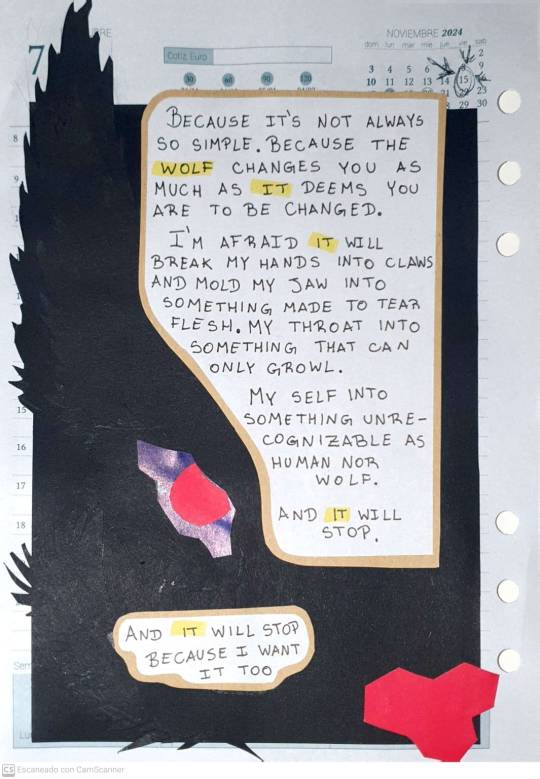 7
RE
Cotiz Euro
30 60 90 120
NOVIEMBRE 2024
dom lun mar mie jue vie sab
2
3 4 5 6 9
10 11 12 13 14 15 16
23
29 30
8
9
BECAUSE IT'S NOT ALWAYS
SO SIMPLE. BECAUSE THE
WOLF CHANGES YOU AS
MUCH AS IT DEEMS YOU
ARE TO BE CHANGED.
I'M AFRAID IT WILL
BREAK MY HANDS INTO CLAWS
AND MOLD MY JAW INTO
SOMETHING MADE TO TEAR
FLESH. MY THROAT INTO
SOMETHING THAT CAN
ONLY GROWL.
MY SELF INTO
SOMETHING UNRE-
COGNIZABLE AS
HUMAN NOR
WOLF.
AND IT WILL
STOP.
15
16
17
18
AND IT WILL STOP
BECAUSE I WANT
IT TOO
Sem
Lu
CS Escaneado con CamScanner